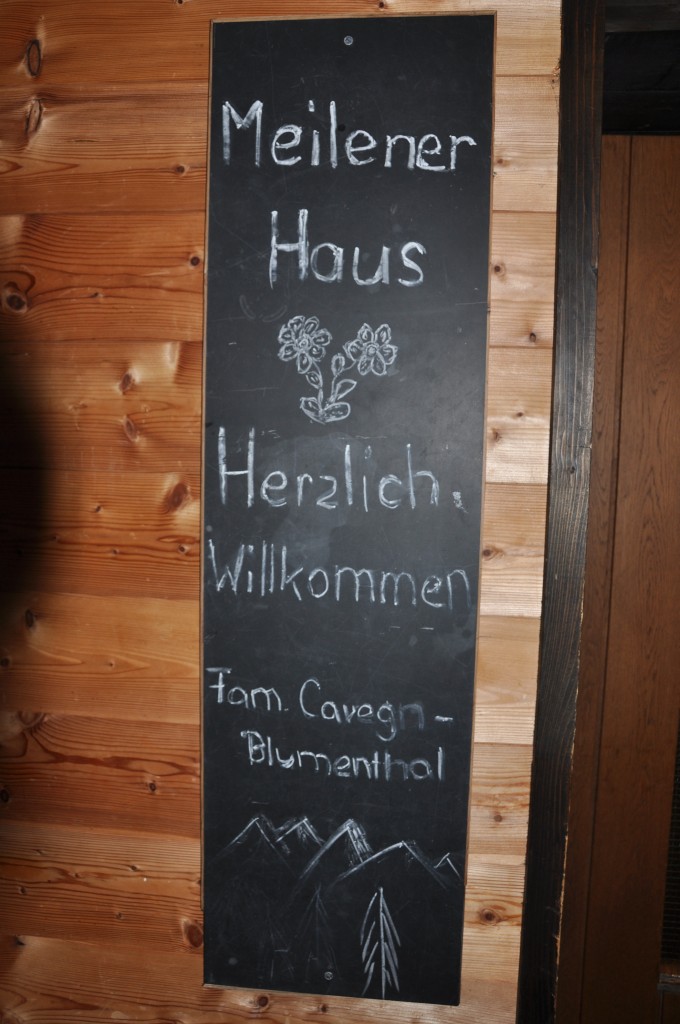 Meilener
Haus
Herzlich.
Willkommen
Fam. Cavegn-
Blumenthal